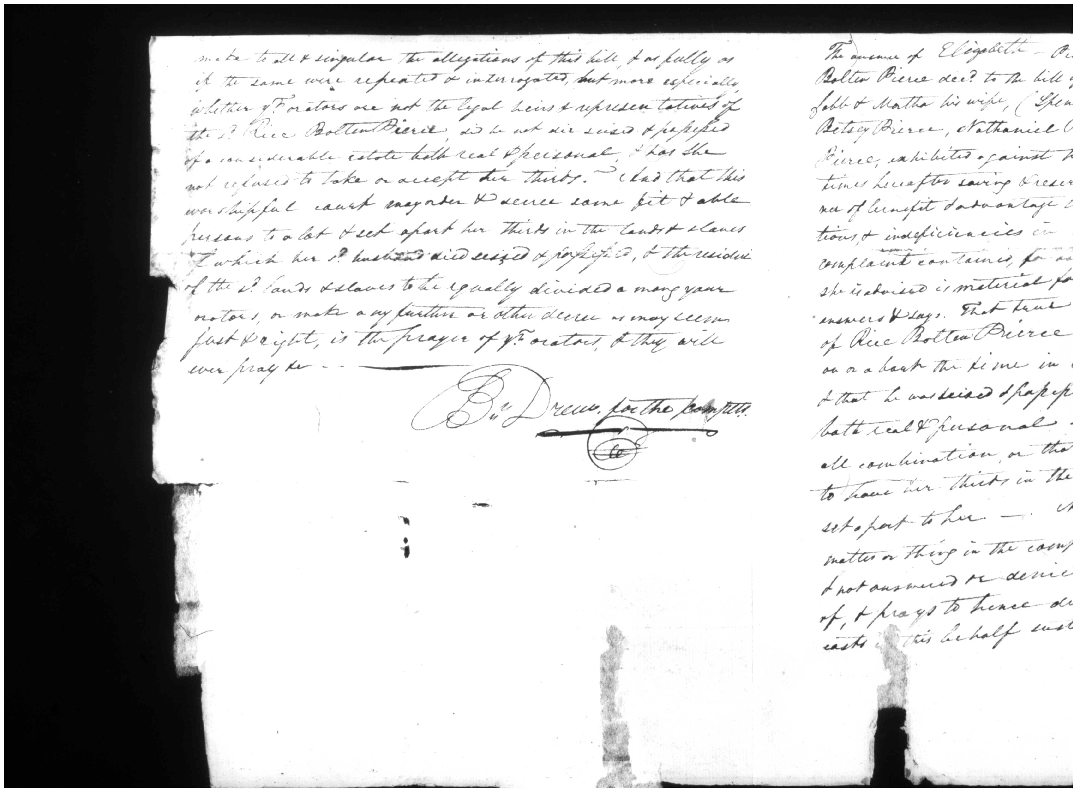 make to all & singular the allegations of this bill, & as fully as
if the same were repeated & interrogated, but more especially,
whether yr Forators are not the legal heirs & representatives of
the sd. Rice Bolten Pierce, did he not die seised & possessed
of a considerable estate both real & personal, & has she
not refused to take or accept her thirds. And that this
worshipful court may order & decree some fit & able
persons to alot & set apart her thirds in the lands & slaves
of which her sd. husband died seized & possessed, & the residue
of the sd. lands & slaves to be equally divided among your
orators, or make any further or other decree as may seem
just & right, is the prayer of yr orators, & they will
ever pray &c
Drew. for the complts.
The answer of Elizabeth
Bolten Pierce decd. to the bill
& Martha his wife, (
Betsey Pierce, Nathaniel
Pierce, exhibited against
times hereafter saving & reser
ner of benefit & advantage
tions & indeficiencies in
complaint contained, for
she is advised is material for
answers & says. That true
of Rice Bolten Pierce
on or about the time in
& that he was seised & possess
both real & personal
all combination, or tha
to have her thirds in the
set apart to her —.
matter or thing in the comp
& not answered or denie
of, & prays to hence
costs this behalf sust